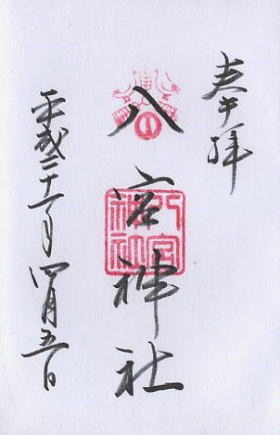 奉拝
八宮神社
平成二十一年四月五日
八宮
神社